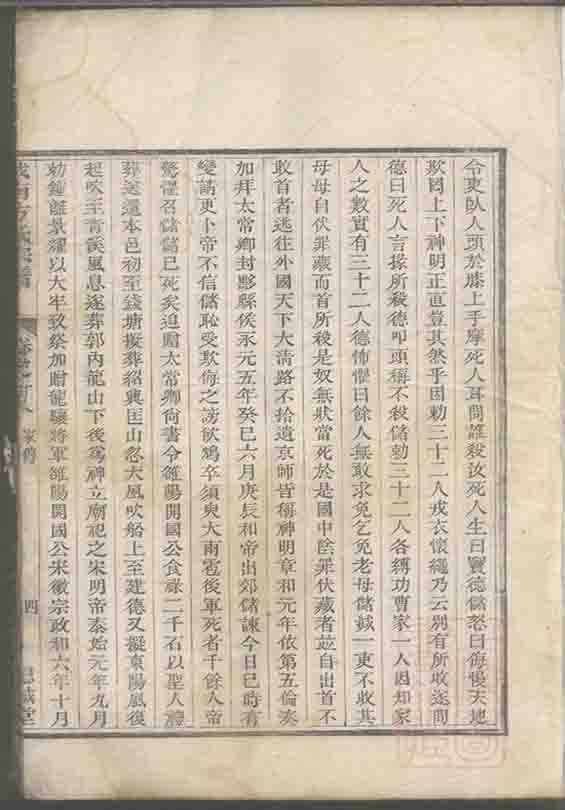 令吏臥人頭於膝上手摩死人耳問誰殺汝死人生曰竇德儲怒曰侮慢天地
欺罔上下神明正直豈其然乎因勅三十二人戎衣懷繩乃云別有所收遂問
德曰死人言掾所殺德叩頭稱不殺儲勅三十二人各縛功曹家一人因知家
人之數實有三十二人德怖懼曰餘人無敢求免乞免老母儲鉞一吏不收其
母母自伏罪藏而首所殺是奴無狀當死於是國中陰罪伏藏者並自出首不
敢首者逃往外國天下大清路不拾遺京師皆稱神明章和元年依第五倫奏
加拜太常卿封黟縣侯永元五年癸巳六月庚辰和帝出郊儲諫今日巳時有
變請更卜帝不信儲恥受欺侮之謗飲鴆卒須臾大雨雹後軍死者千餘人帝
驚懼召儲儲已死矣追贈太常卿尚書令雒陽開國公食祿二千石以聖人禮
葬送還本邑初至錢塘擬葬紹興匡山忽大風吹船上至建德又擬東陽風復
起吹至青溪風息遂葬郭內龍山下後為神立廟祀之宋明帝泰始元年九月
勅鐘簴景燿以大牢致祭加贈龍驤將軍雒陽開國公宋徽宗政和六年十月
方氏宗譜
家傳
四